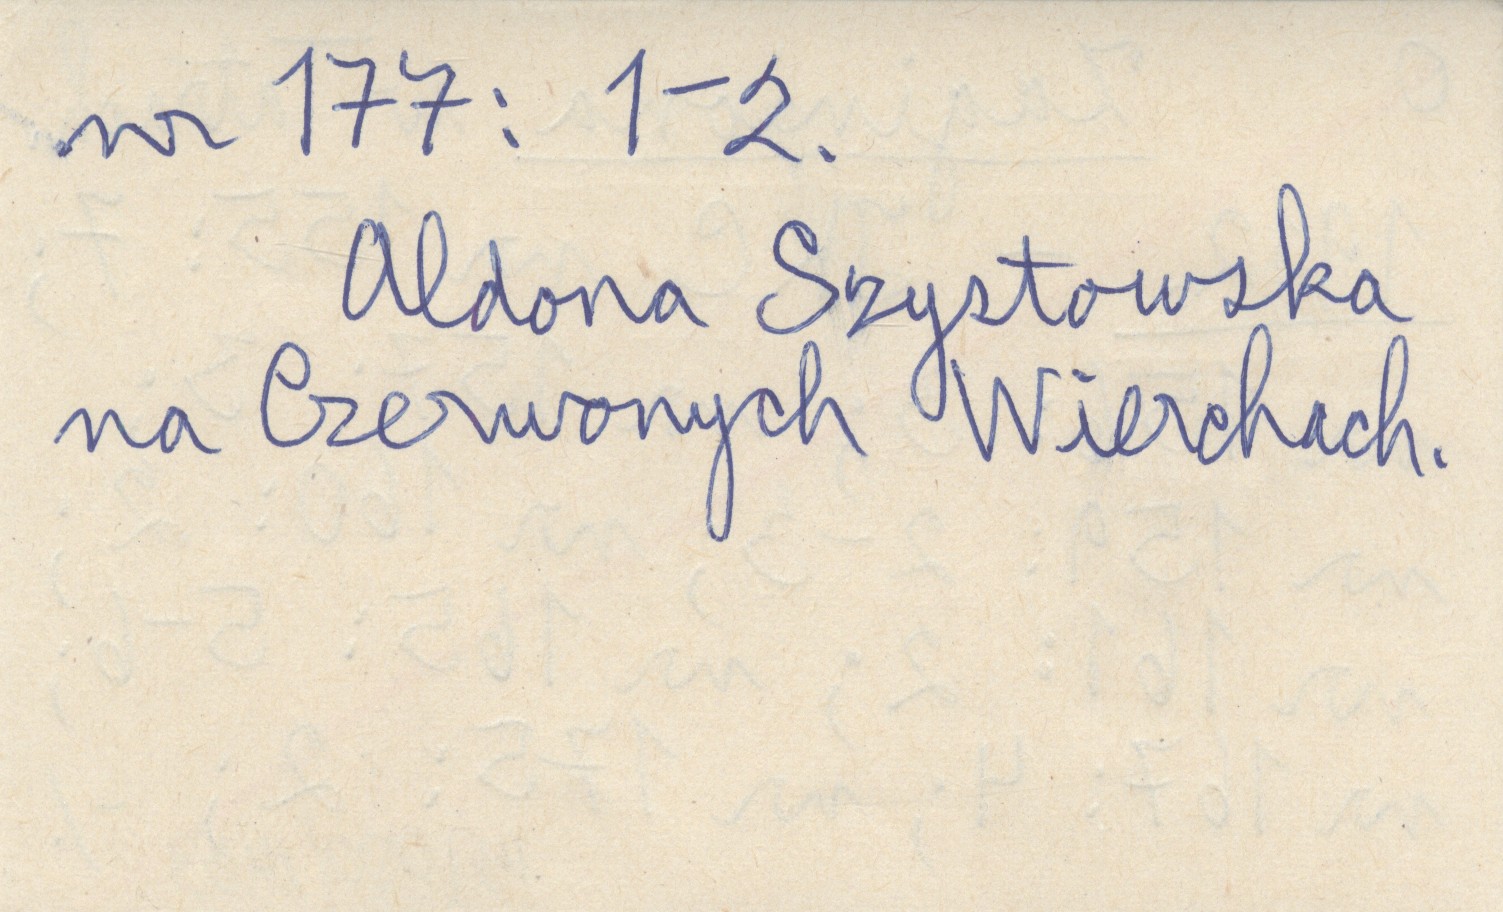 nr 177: 1-2.
Aldona Szystowska
na Czerwonych Wierchach.